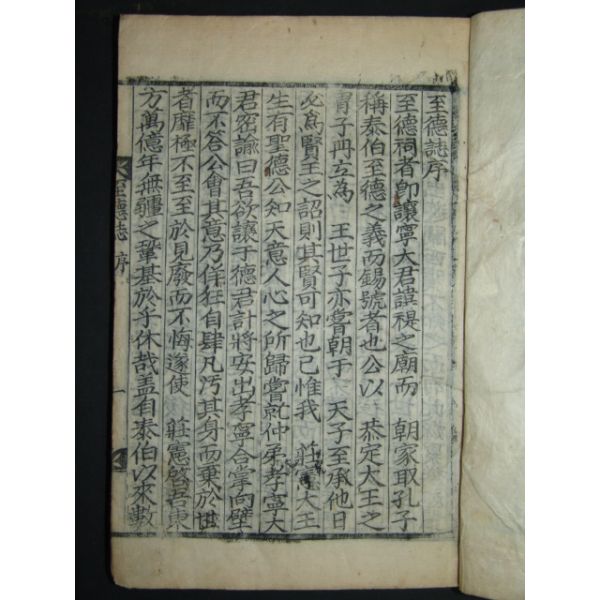 至德誌序
至德祠者卽讓寧大君諱禔之廟而 朝家取孔子
稱泰伯至德之義而錫號者也公以 恭定大王之
冑子冊立為 王世子亦嘗朝于 天子至承他日
必為賢王之詔則其賢可知也已惟我 莊憲大王
生有聖德公知天意人心之所歸嘗就仲弟孝寧大
君密諭曰吾欲讓于德君計將安出孝寧合掌向壁
而不答公會其意乃佯狂自肆凡汚其身而棄於世
者靡極不至至於見廢而不悔遂使 莊憲啓吾東
方萬億年無疆之鞏基於乎休哉盖自泰伯以來數
至德誌 序 一